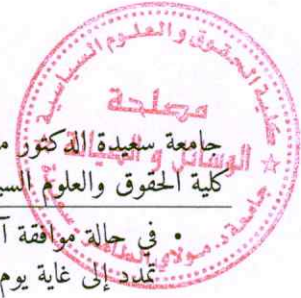 كلية الحقوق والعلوم السياسية
مصلحة
الوسائل و الصيانة
جامعة د. مولاي الطاهر
جامعة سعيدة الدكتور
كلية الحقوق والعلوم
• في حالة موافقة
تمدد إلى غاية يوم